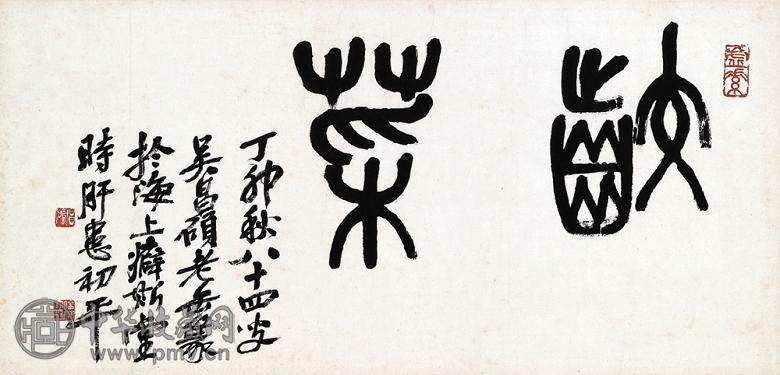 齩菜
丁卯秋八十四叟
吳昌碩老缶篆
於海上癖斯堂
時肝恙初平
中华收藏网